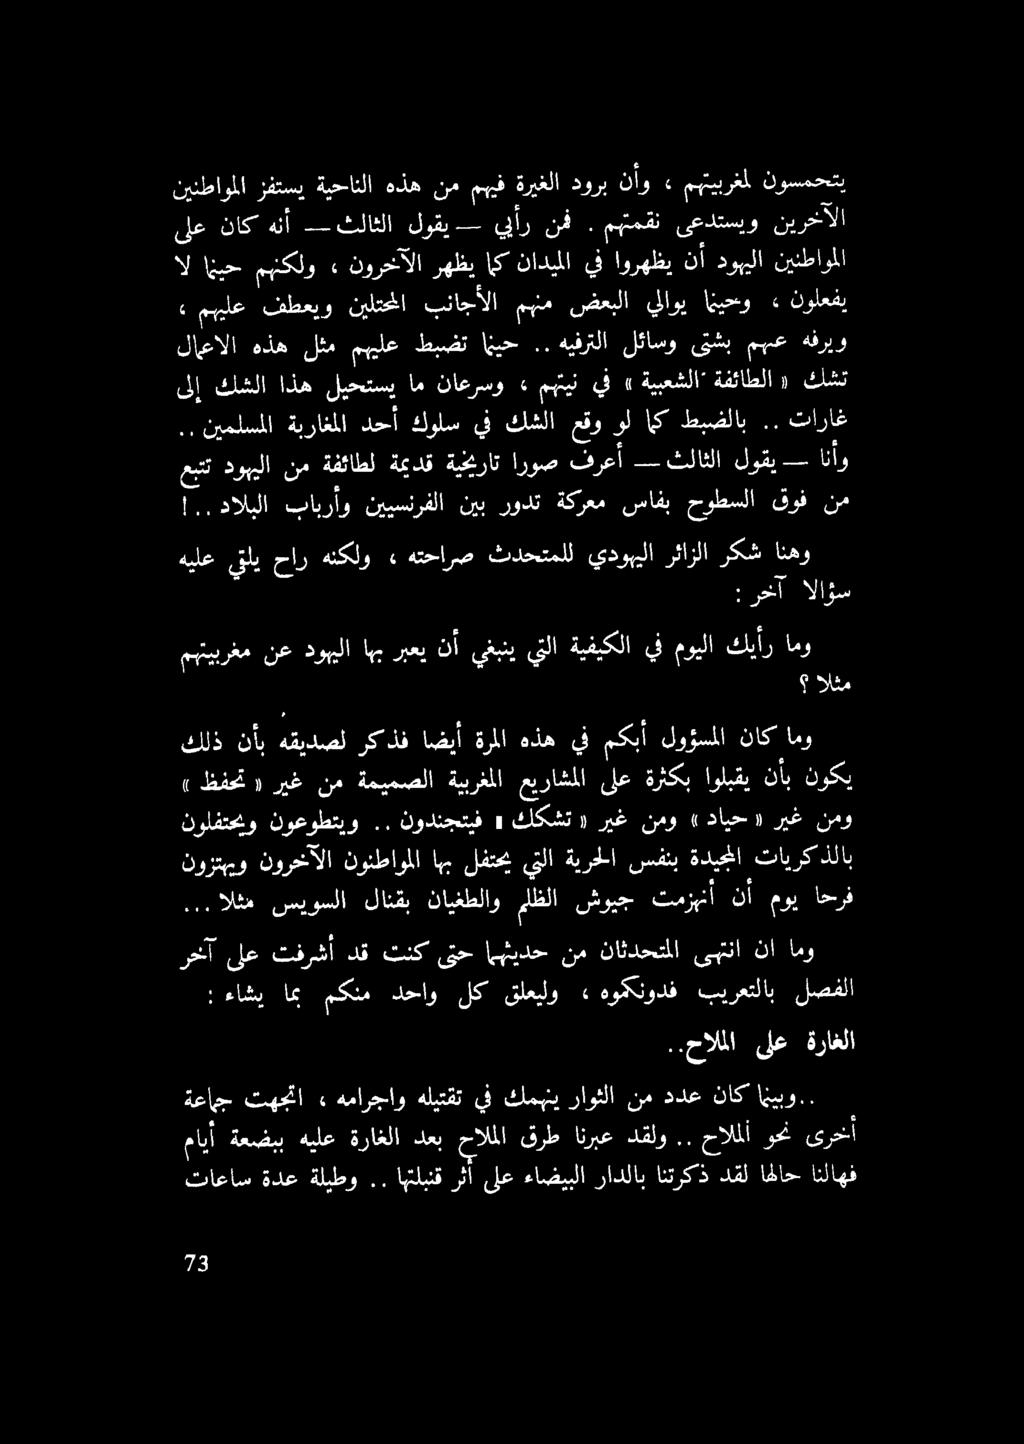 يتحمسون لمغربيتهم ، وأن برود الغيرة فيهم من هذه الناحية يستفز المواطنين
الآخرين ويستدعى نقمتهم . فمن رأيي — يقول الثالث — أنه كان على
المواطنين اليهود أن يظهروا في الميدان كما يظهر الآخرون ، ولكنهم حينما لا
يفعلون ، وحينما يوالي البعض منهم الأجانب المحتلين ويعطف عليهم ،
ويرفه عنهم بشتى وسائل الترفيه .. حينما تضبط عليهم مثل هذه الاعمال
تشك « الطائفة الشعبية » في نيتهم ، وسرعان ما يستحيل هذا الشك إلى
غارات .. بالضبط كما لو وقع الشك في سلوك أحد المغاربة المسلمين ..
وأنا — يقول الثالث — أعرف صورا تاريخية قديمة لطائفة من اليهود تتبع
من فوق السطوح بفاس معركة تدور بين الفرنسيين وأرباب البلاد .. !
وهنا شكر الزائر اليهودي للمتحدث صراحته ، ولكنه راح يلقي عليه
سؤالا آخر :
وما رأيك اليوم في الكيفية التي ينبغي أن يعبر بها اليهود عن مغربيتهم
مثلا ؟
وما كان المسؤول أبكم في هذه المرة أيضا فذكر لصديقه بأن ذلك
يكون بأن يقبلوا بكثرة على المشاريع المغربية الصميمة من غير « تحفظ »
ومن غير « حياد » ومن غير « تشكك » فيتجندون .. ويتطوعون ويحتفلون
بالذكريات المجيدة بنفس الحرية التي يحتفل بها المواطنون الآخرون ويهتزون
فرحا يوم أن أنهزمت جيوش الظلم والطغيان بقنال السويس مثلا ...
وما ان انتهى المتحدثان من حديثهما حتى كنت قد أشرفت على آخر
الفصل بالتعريب فدونكموه ، وليعلق كل واحد منكم بما يشاء :
الغارة على الملاح ..
.. وبينما كان عدد من الثوار ينهمك في تقتيله واجرامه ، اتجهت جماعة
أخرى نحو الملاح .. ولقد عبرنا طرق الملاح بعد الغارة عليه ببضعة أيام
فهالنا حالها لقد ذكرتنا بالدار البيضاء على أثر قنبلتها .. وطيلة عدة ساعات
73